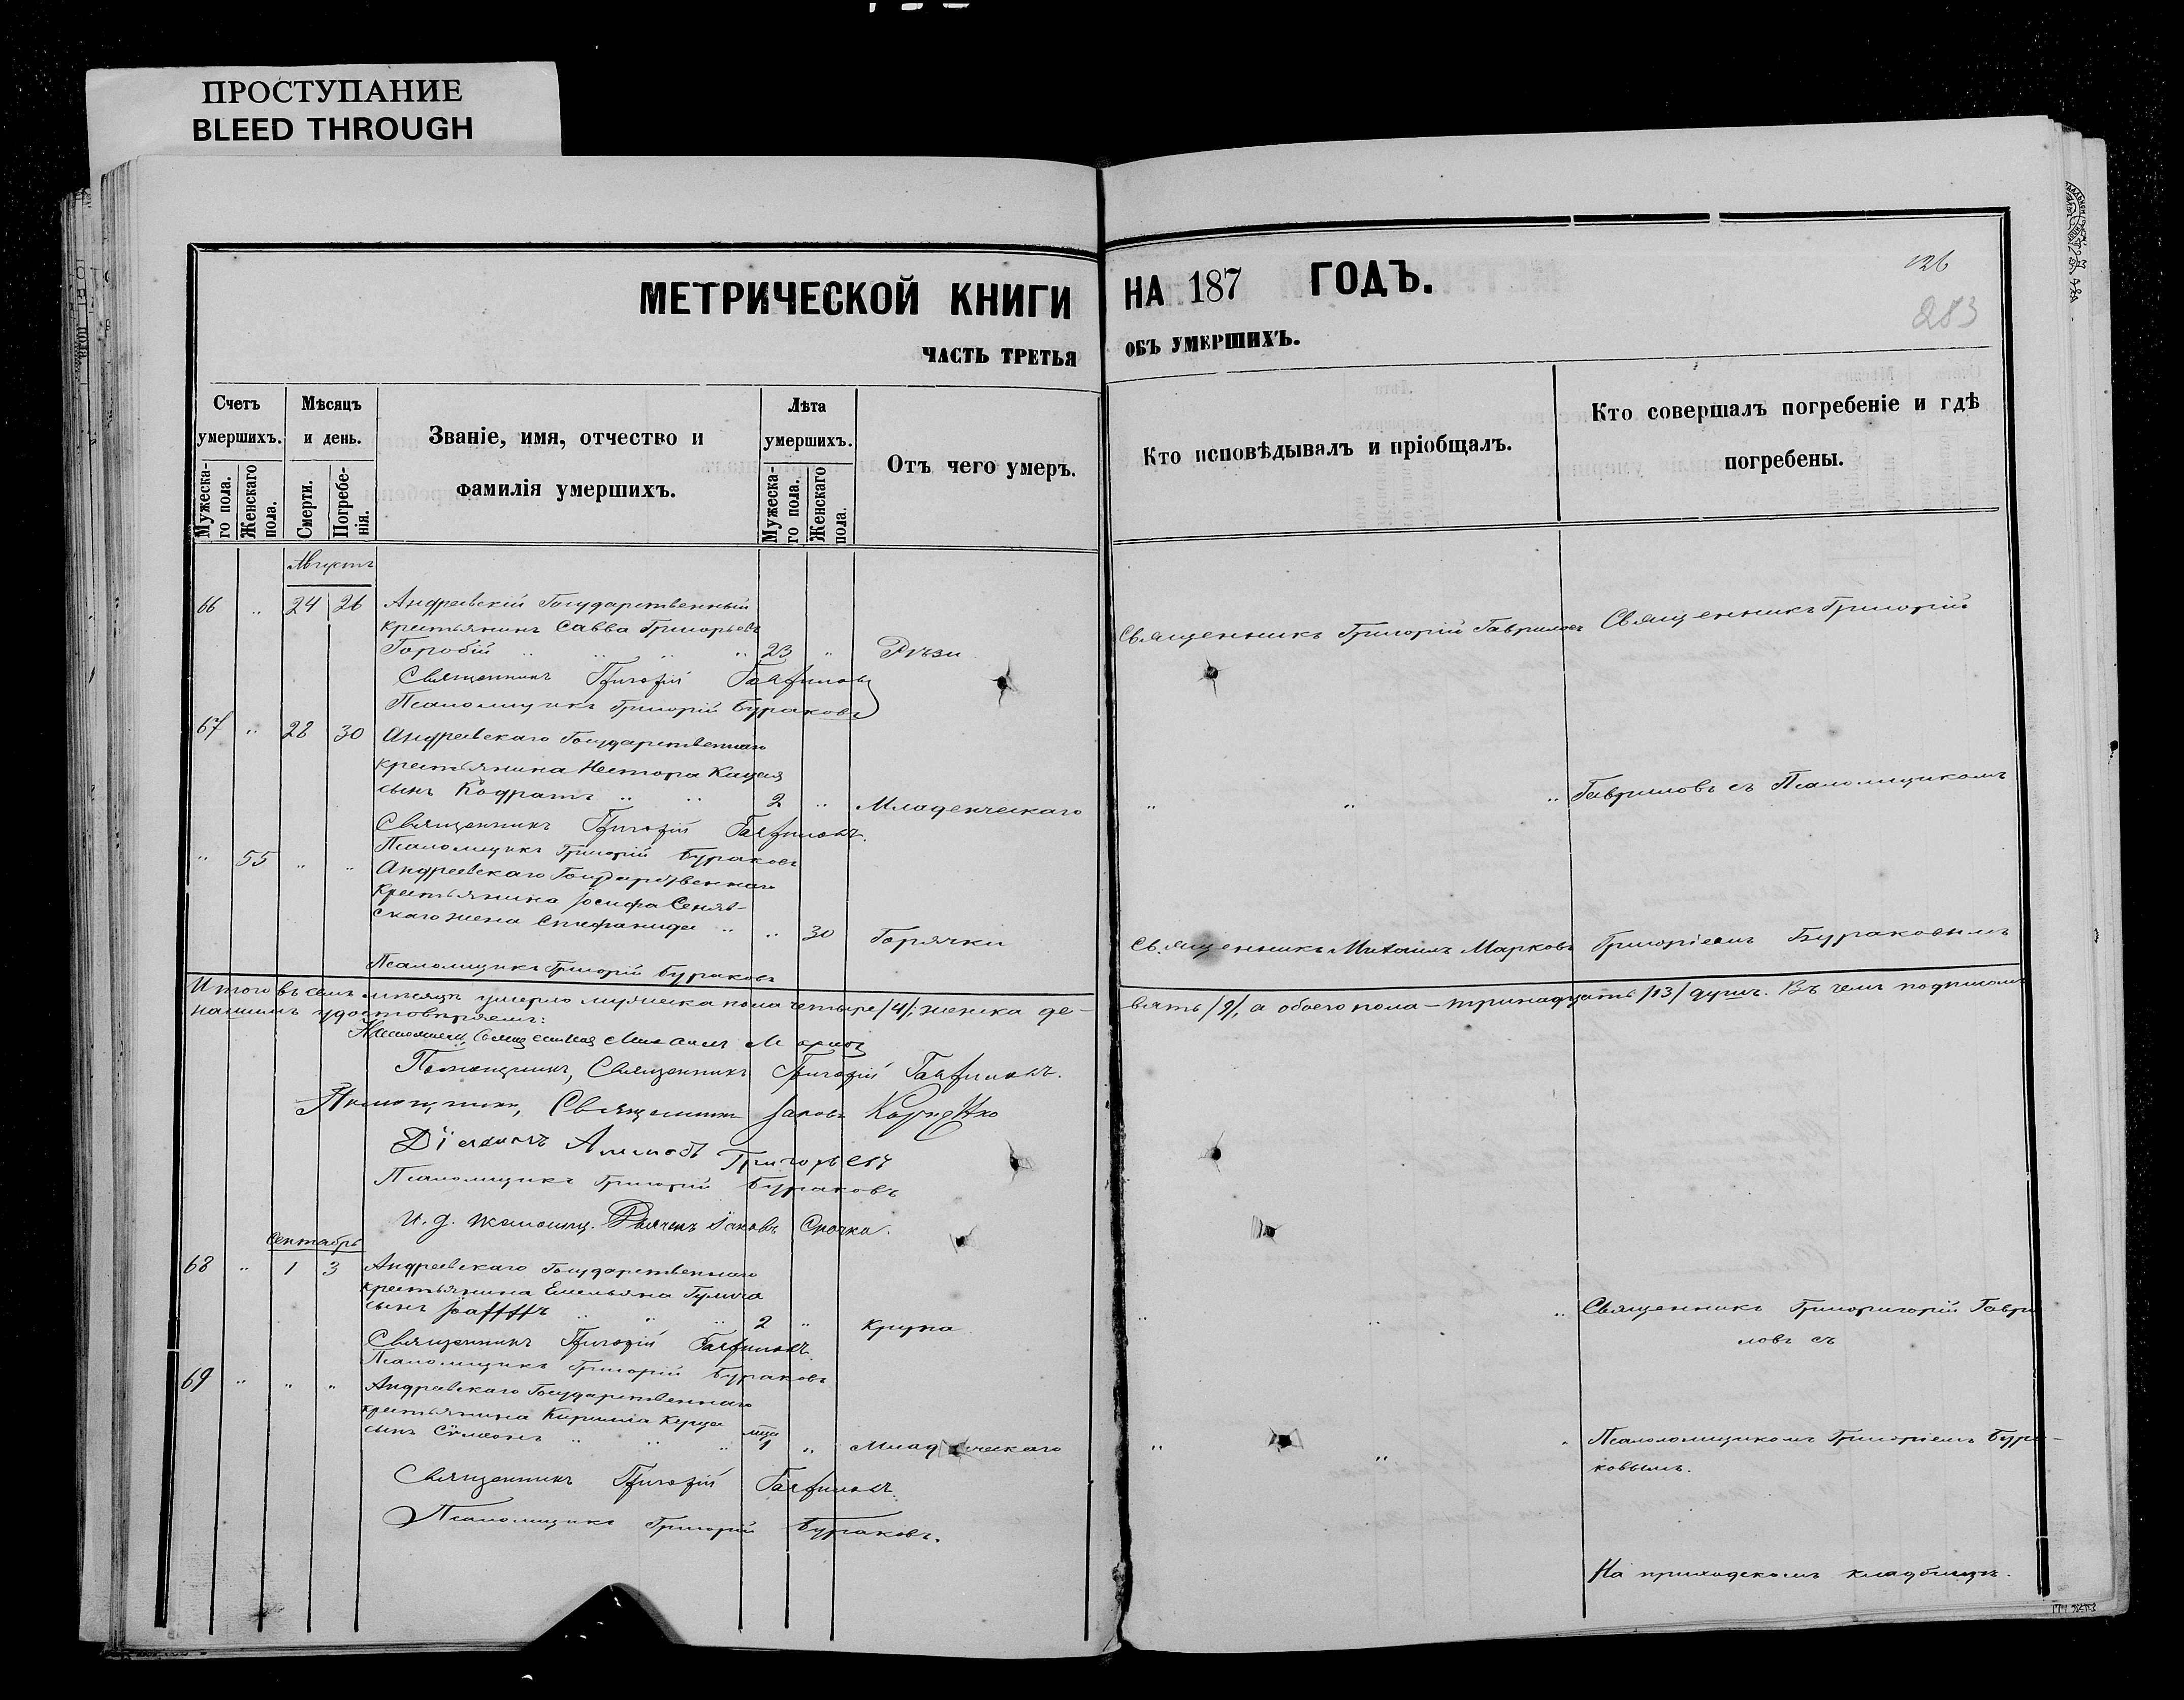 ПРОСТУПАНИЕ
BLEED THROUGH
МЕТРИЧЕСКОЙ КНИГИ НА 187 ГОДЪ.
126
283
ЧАСТЬ ТРЕТЬЯ ОБЪ УМЕРШИХЪ.
Счетъ умершихъ.
Мужеска-го пола.
Женскаго пола.
Мѣсяцъ и день.
Смерти.
Погребе-нія.
Званіе, имя, отчество и
фамилія умершихъ.
Лѣта умершихъ.
Мужеска-го пола.
Женскаго пола.
Отъ чего умеръ.
Кто исповѣдывалъ и пріобщалъ.
Кто совершалъ погребеніе и гдѣ
погребены.
Августъ
66 " 24 26 Андреевскій Государственный
крестьянинъ Савва Григорьевъ
Горобій " " " " 23 " Рѣзи
Священникъ Григорій Гавриловъ Священникъ Григорій
Священникъ Григорій Гавриловъ
Псаломщикъ Григорій Бураковъ
67 " 28 30 Андреевскаго Государственнаго
крестьянина Нестора
сынъ Кодратъ " " 2 " Младенческаго
" " " Гавриловъ съ Псаломщикомъ
Священникъ Григорій Гавриловъ.
Псаломщикъ Григорій Бураковъ
" 55 " " Андреевскаго Государственнаго
крестьянина Іосифа Сеняв-
скаго жена Стефанида " " 30 Горячки
Священникъ Михаилъ Марковъ Григоріемъ Бураковымъ
Псаломщикъ Григорій Бураковъ
Итого въ семъ мѣсяцѣ умерло мужеска пола четыре /4/, женска де-вять /9/, а обоего пола – тринадцать /13/ душъ. Въ чемъ подписомъ
нашимъ удостовѣряемъ:
Священникъ Михаилъ Марковъ
Помощникъ, Священникъ Григорій Гавриловъ.
Помощникъ, Священникъ Іаковъ
Діаконъ Григорьевъ
Псаломщикъ Григорій Бураковъ
И. д. Іаковъ
Сентябрь
68 " 1 3 Андреевскаго Государственнаго
крестьянина Емельяна
сынъ " " " 2 " Крупа
" " " Священникъ Григоригорій Гаври
ловъ съ
Священникъ Григорій Гавриловъ.
Псаломщикъ Григорій Бураковъ
69 " " " Андреевскаго Государственнаго
крестьянина Кирилла
сынъ Сѵмеонъ " " " мца 1 " Младенческаго
" " " Псаломщикомъ Григоріемъ Бура-
ковымъ.
Священникъ Григорій Гавриловъ.
Псаломщикъ Григорій Бураковъ.
На приходскомъ кладбищѣ.